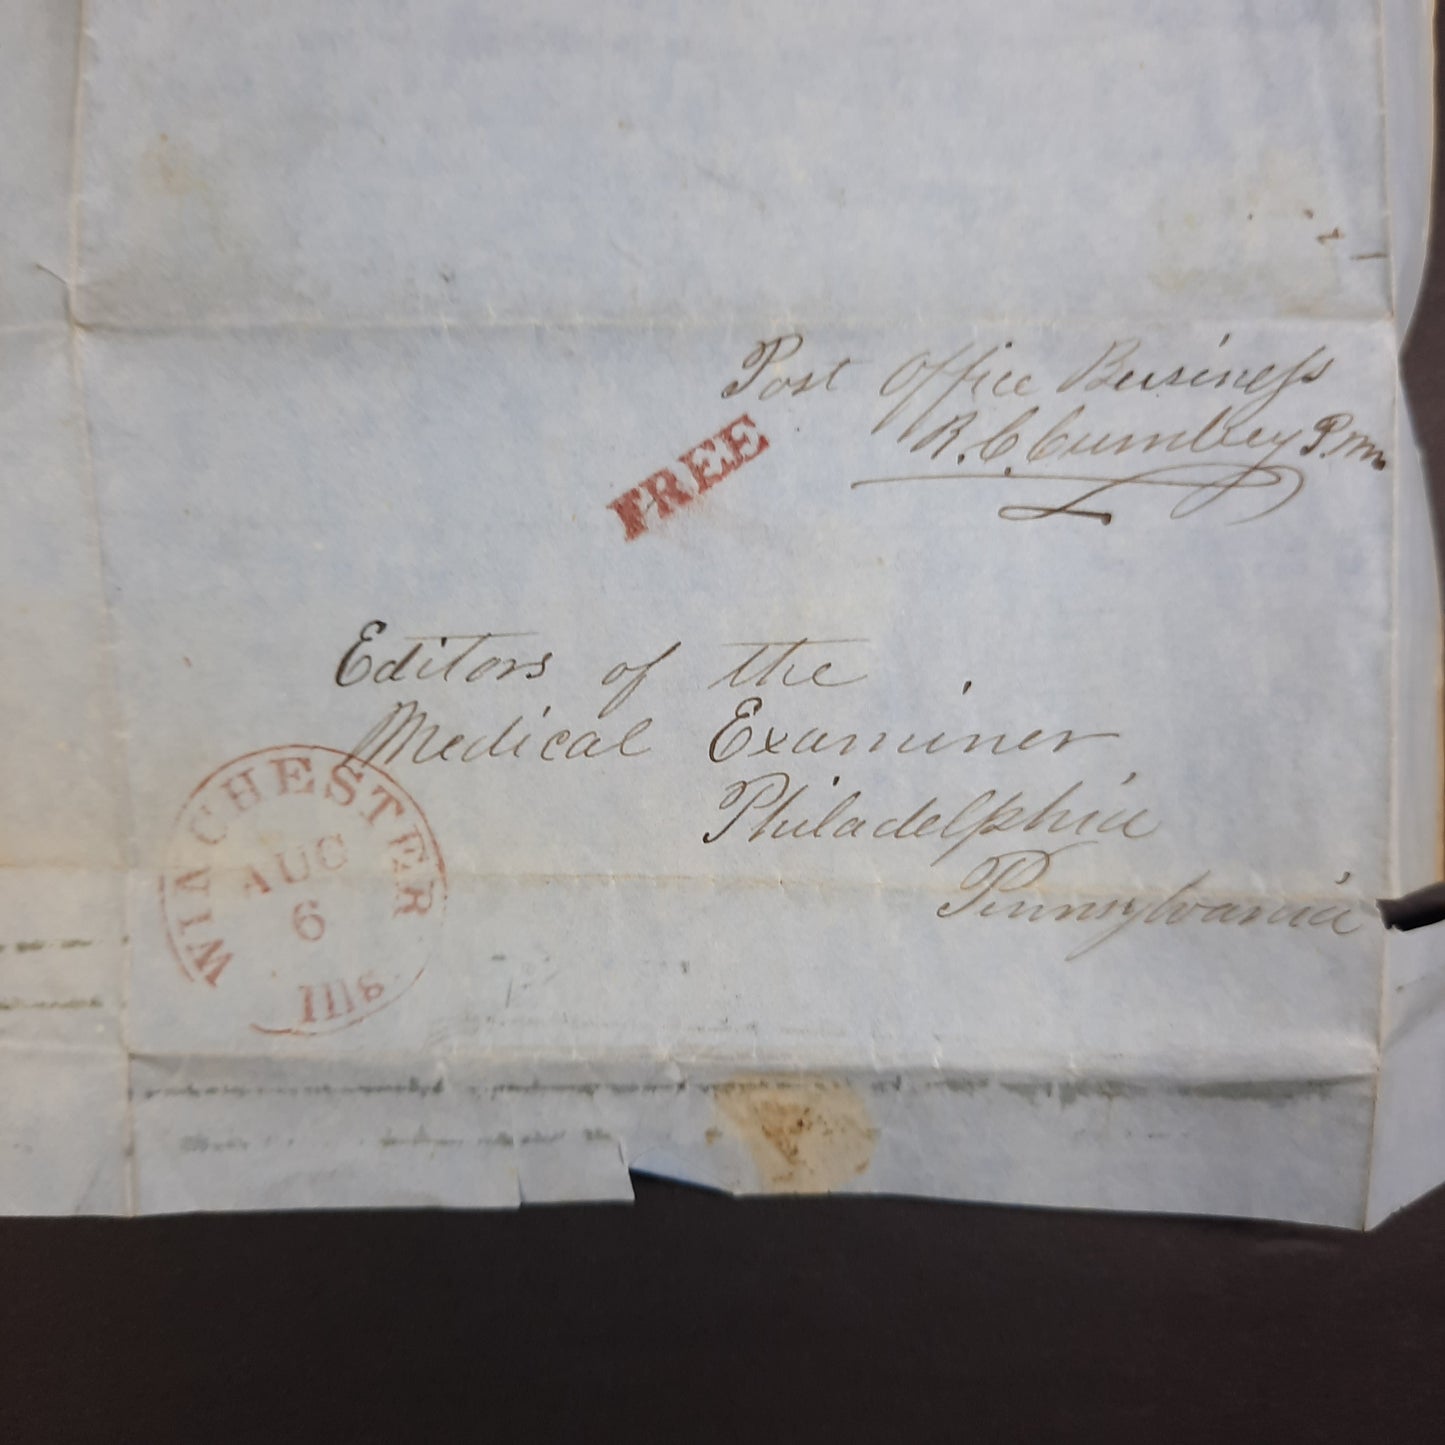 Post Office Business
R. C. Cumbey P.m.
FREE
Editors of the
Medical Examiner
Philadelphia
Pennsylvania
WINCHESTER
AUG
6
Ills